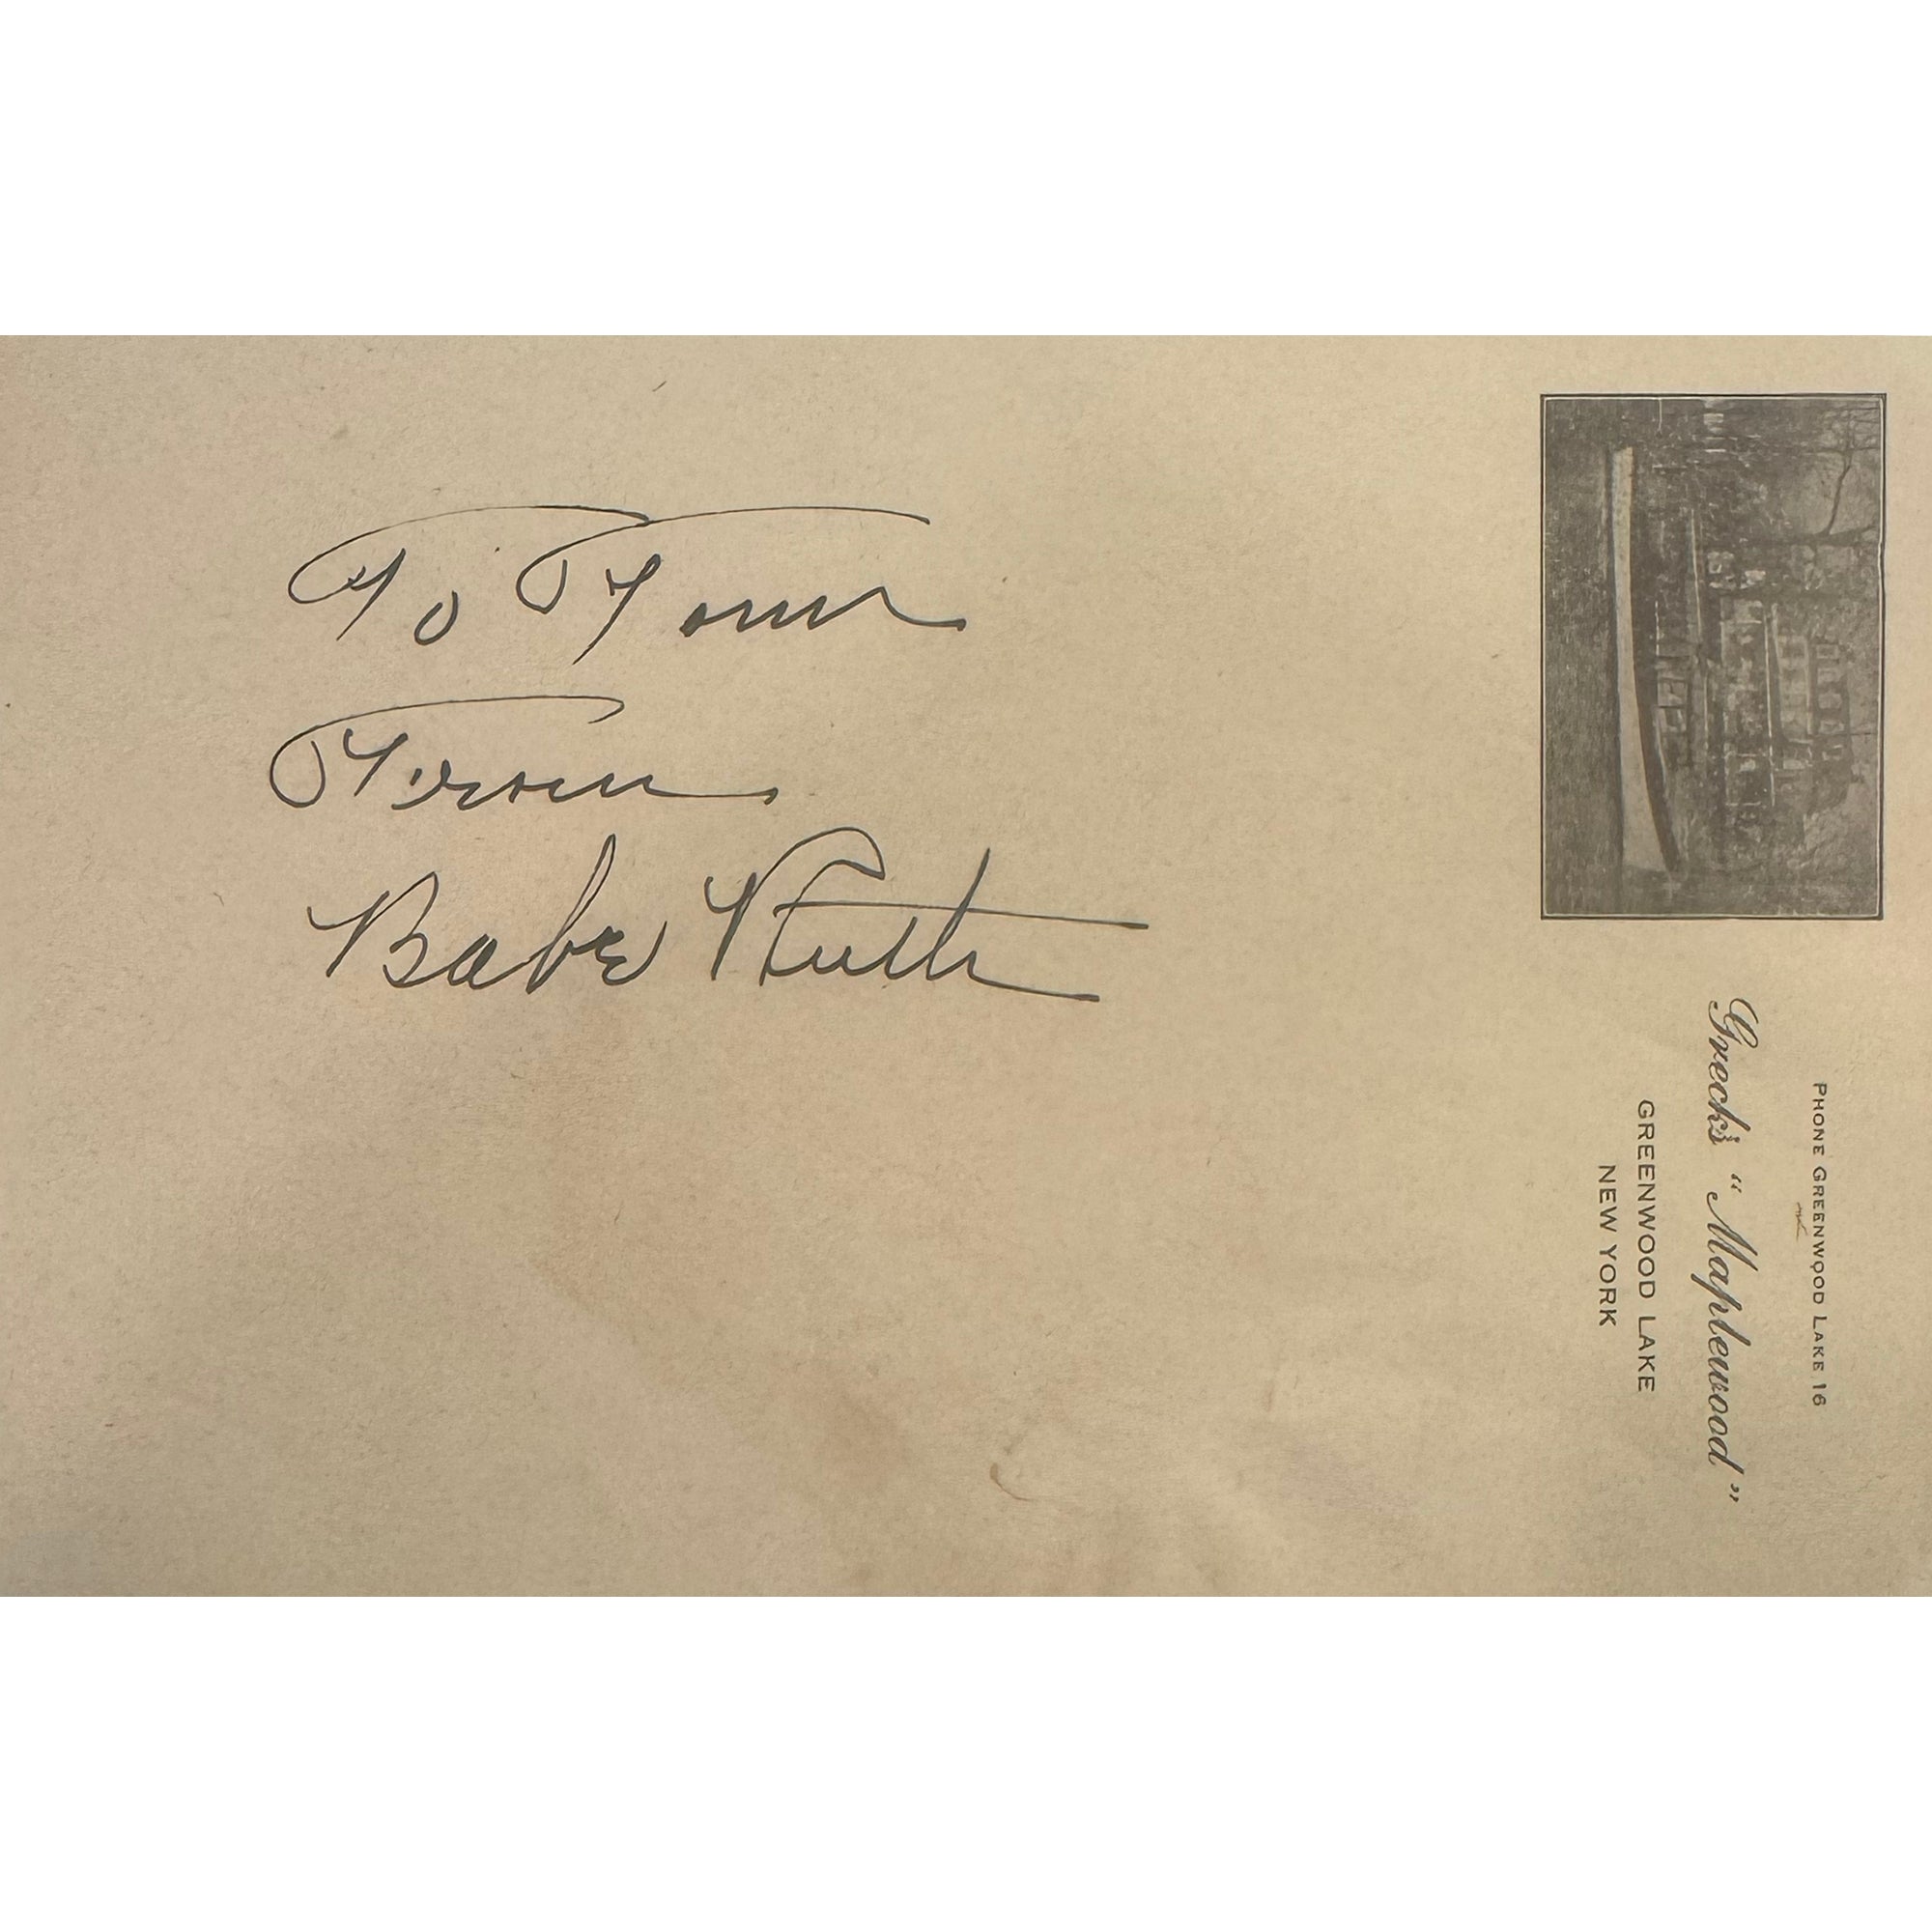 To Tom
From
Babe Ruth
PHONE GREENWOOD LAKE 16
Greck's "Maplewood"
GREENWOOD LAKE
NEW YORK